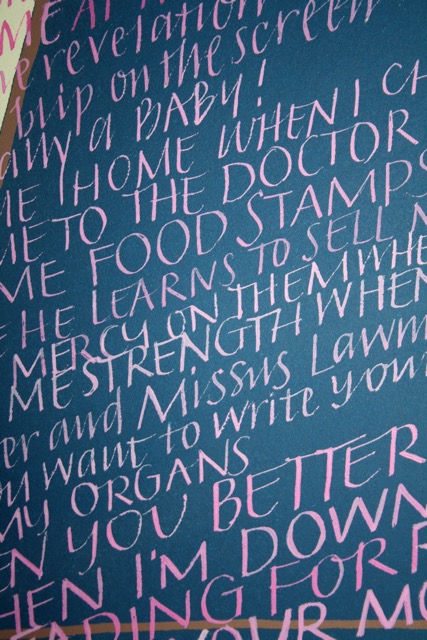 ME AT
revelation
blip on the screen
a BABY!
ME HOME WHEN I
ME TO THE DOCTOR
ME FOOD STAMPS
HE LEARNS TO SELL
MERCY ON THEM WHE
ME STRENGTH WHEN
er and Missus Lawm
want to write your
MY ORGANS
EN YOU BETTER
HEN I'M DOWN
FOR
YOUR MO